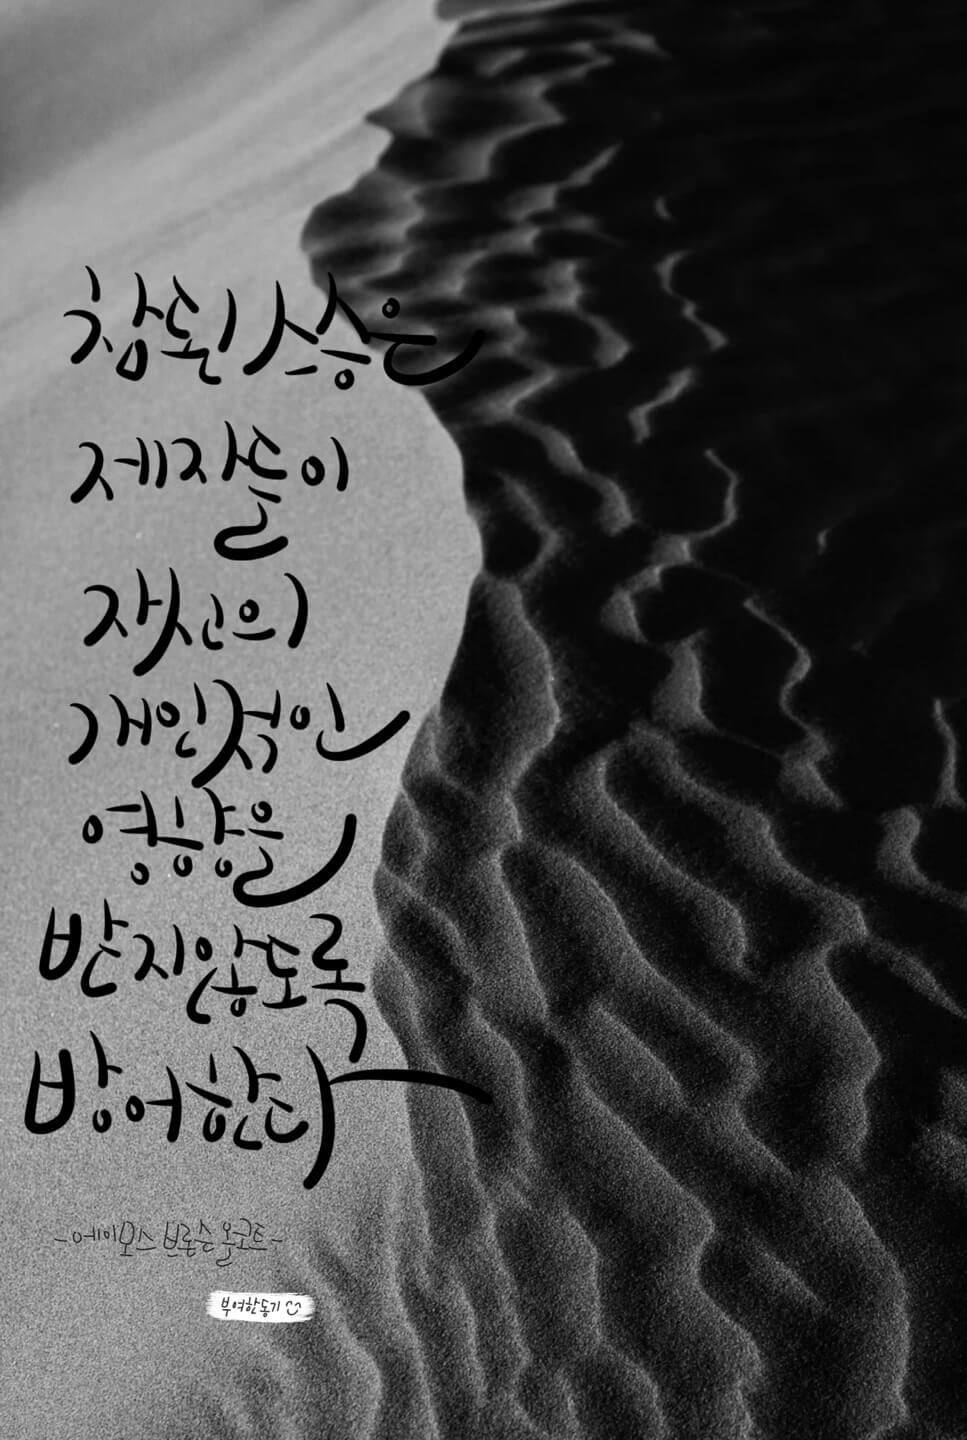 참된 스승은
제자들이
자신의
개인적인
영향을
받지않도록
방어한다
-에이모스 브론슨 올코트-
부여한동기